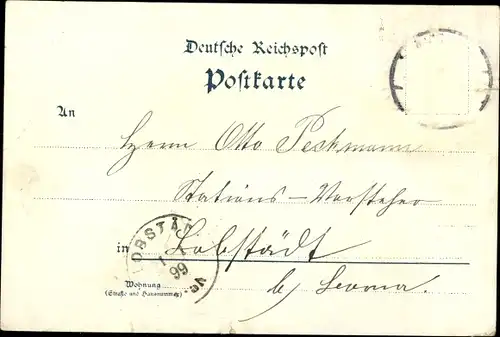 Deutsche Reichspost
Postkarte
An
Herrn Otto Peckmann
Stations-Vorsteher
in Lobstädt
b/ Borna.
Wohnung
(Straße und Hausnummer)
LOBSTÄ
1
99